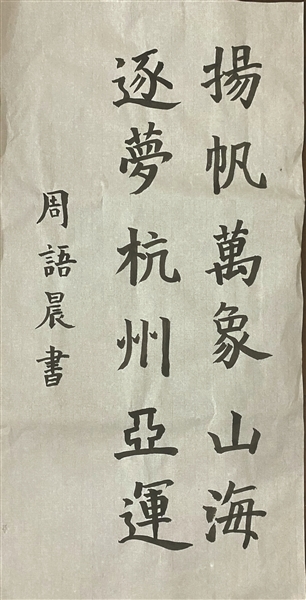 揚帆萬象山海
逐夢杭州亞運
周語晨書